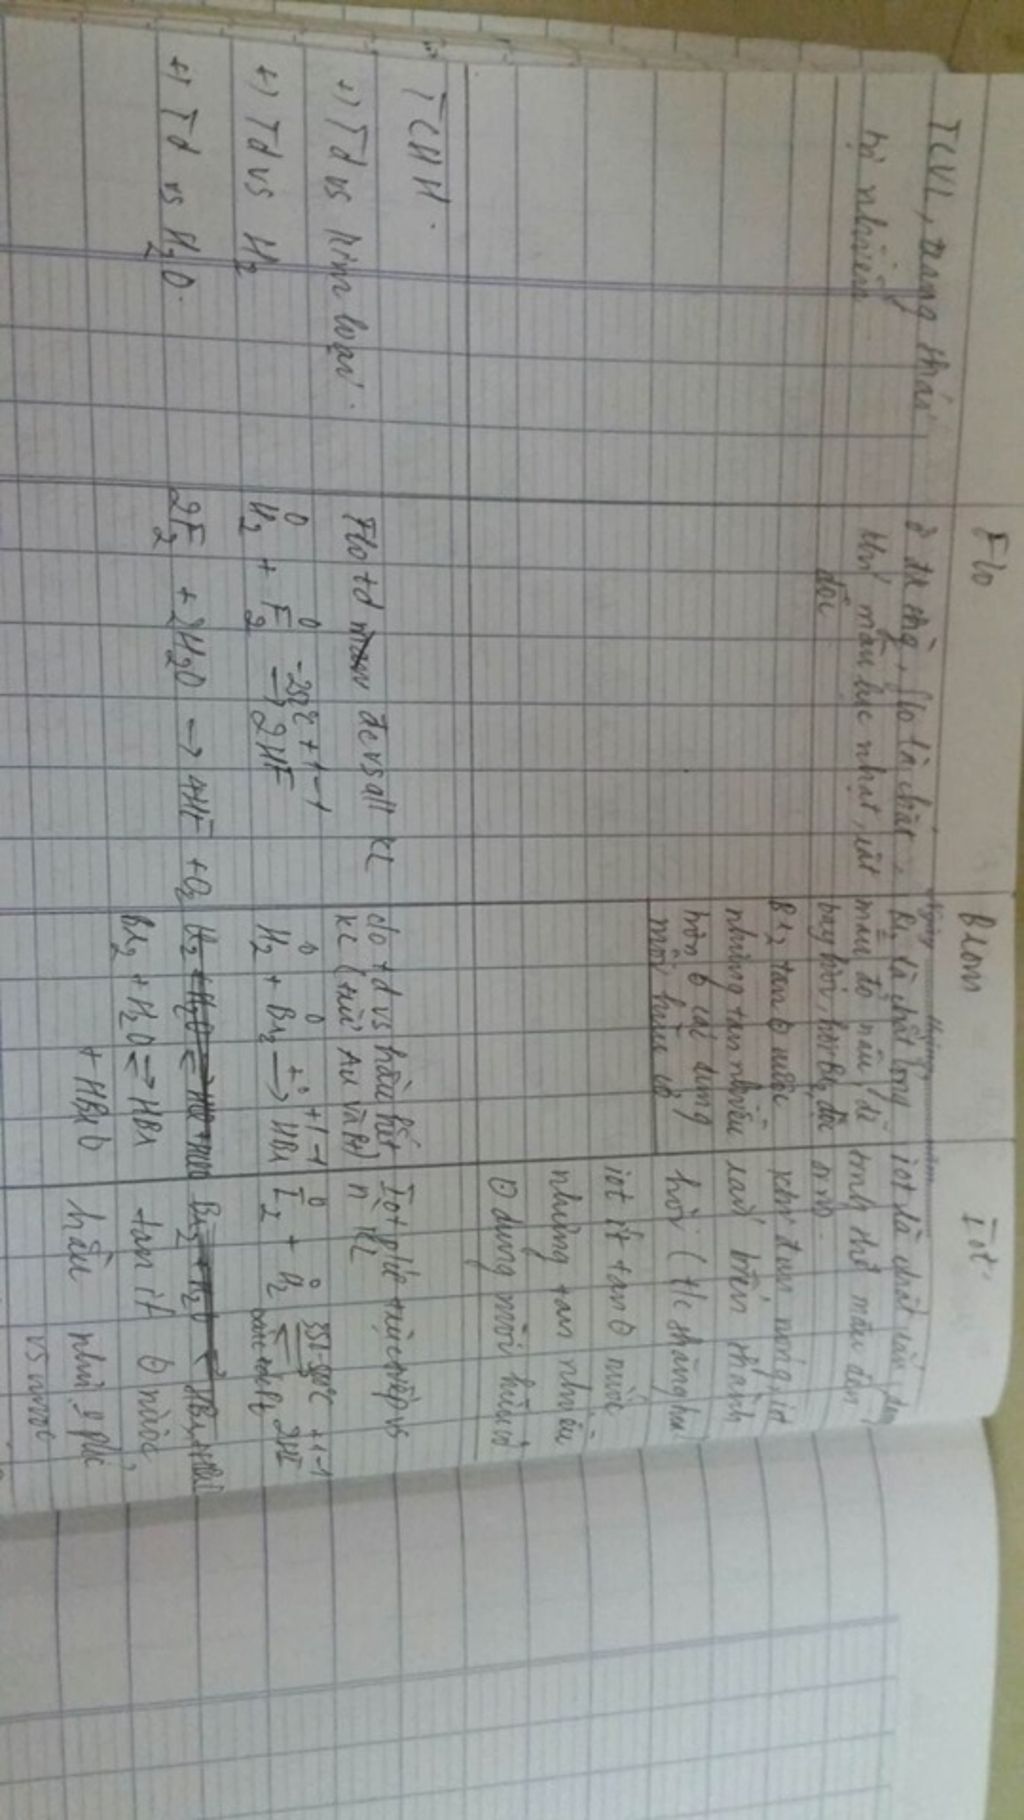 Flo
Brom
Iot
TCVL, trạng thái
tự nhiên
ở đk thg, flo là chất
khí màu lục nhạt, rất
độc
Br₂ là chất lỏng
màu đỏ nâu, dễ
bay hơi, hơi Br₂ độc
Br₂ tan ở nước
nhưng tan nhiều
hơn ở các dung
môi hữu cơ
iot là chất rắn, dạng
tinh thể màu đen
tím.
khi đun nóng, iot
rắn biến thành
hơi (t/c thăng hoa)
iot ít tan ở nước
nhưng tan nhiều
ở dung môi hữu cơ
TCHH.
+) Td vs kim loại.
Flo td đc vs all KL
do td vs hầu hết
KL (trừ Au và Pt)
Iot pứ trực tiếp vs
n KL
+) Td vs H₂
0 0 -252°C +1 -1
H₂ + F₂ → 2HF
0 0 t° +1 -1
H₂ + Br₂ → HBr
0 0 350-500°C +1 -1
I₂ + H₂ ⇌ 2HI
+) Td vs H₂O.
2F₂ + 2H₂O → 4HF + O₂
Br₂ + H₂O ⇌ HBr
+ HBrO
tan ít ở nước,
hầu như o pứ
vs nước